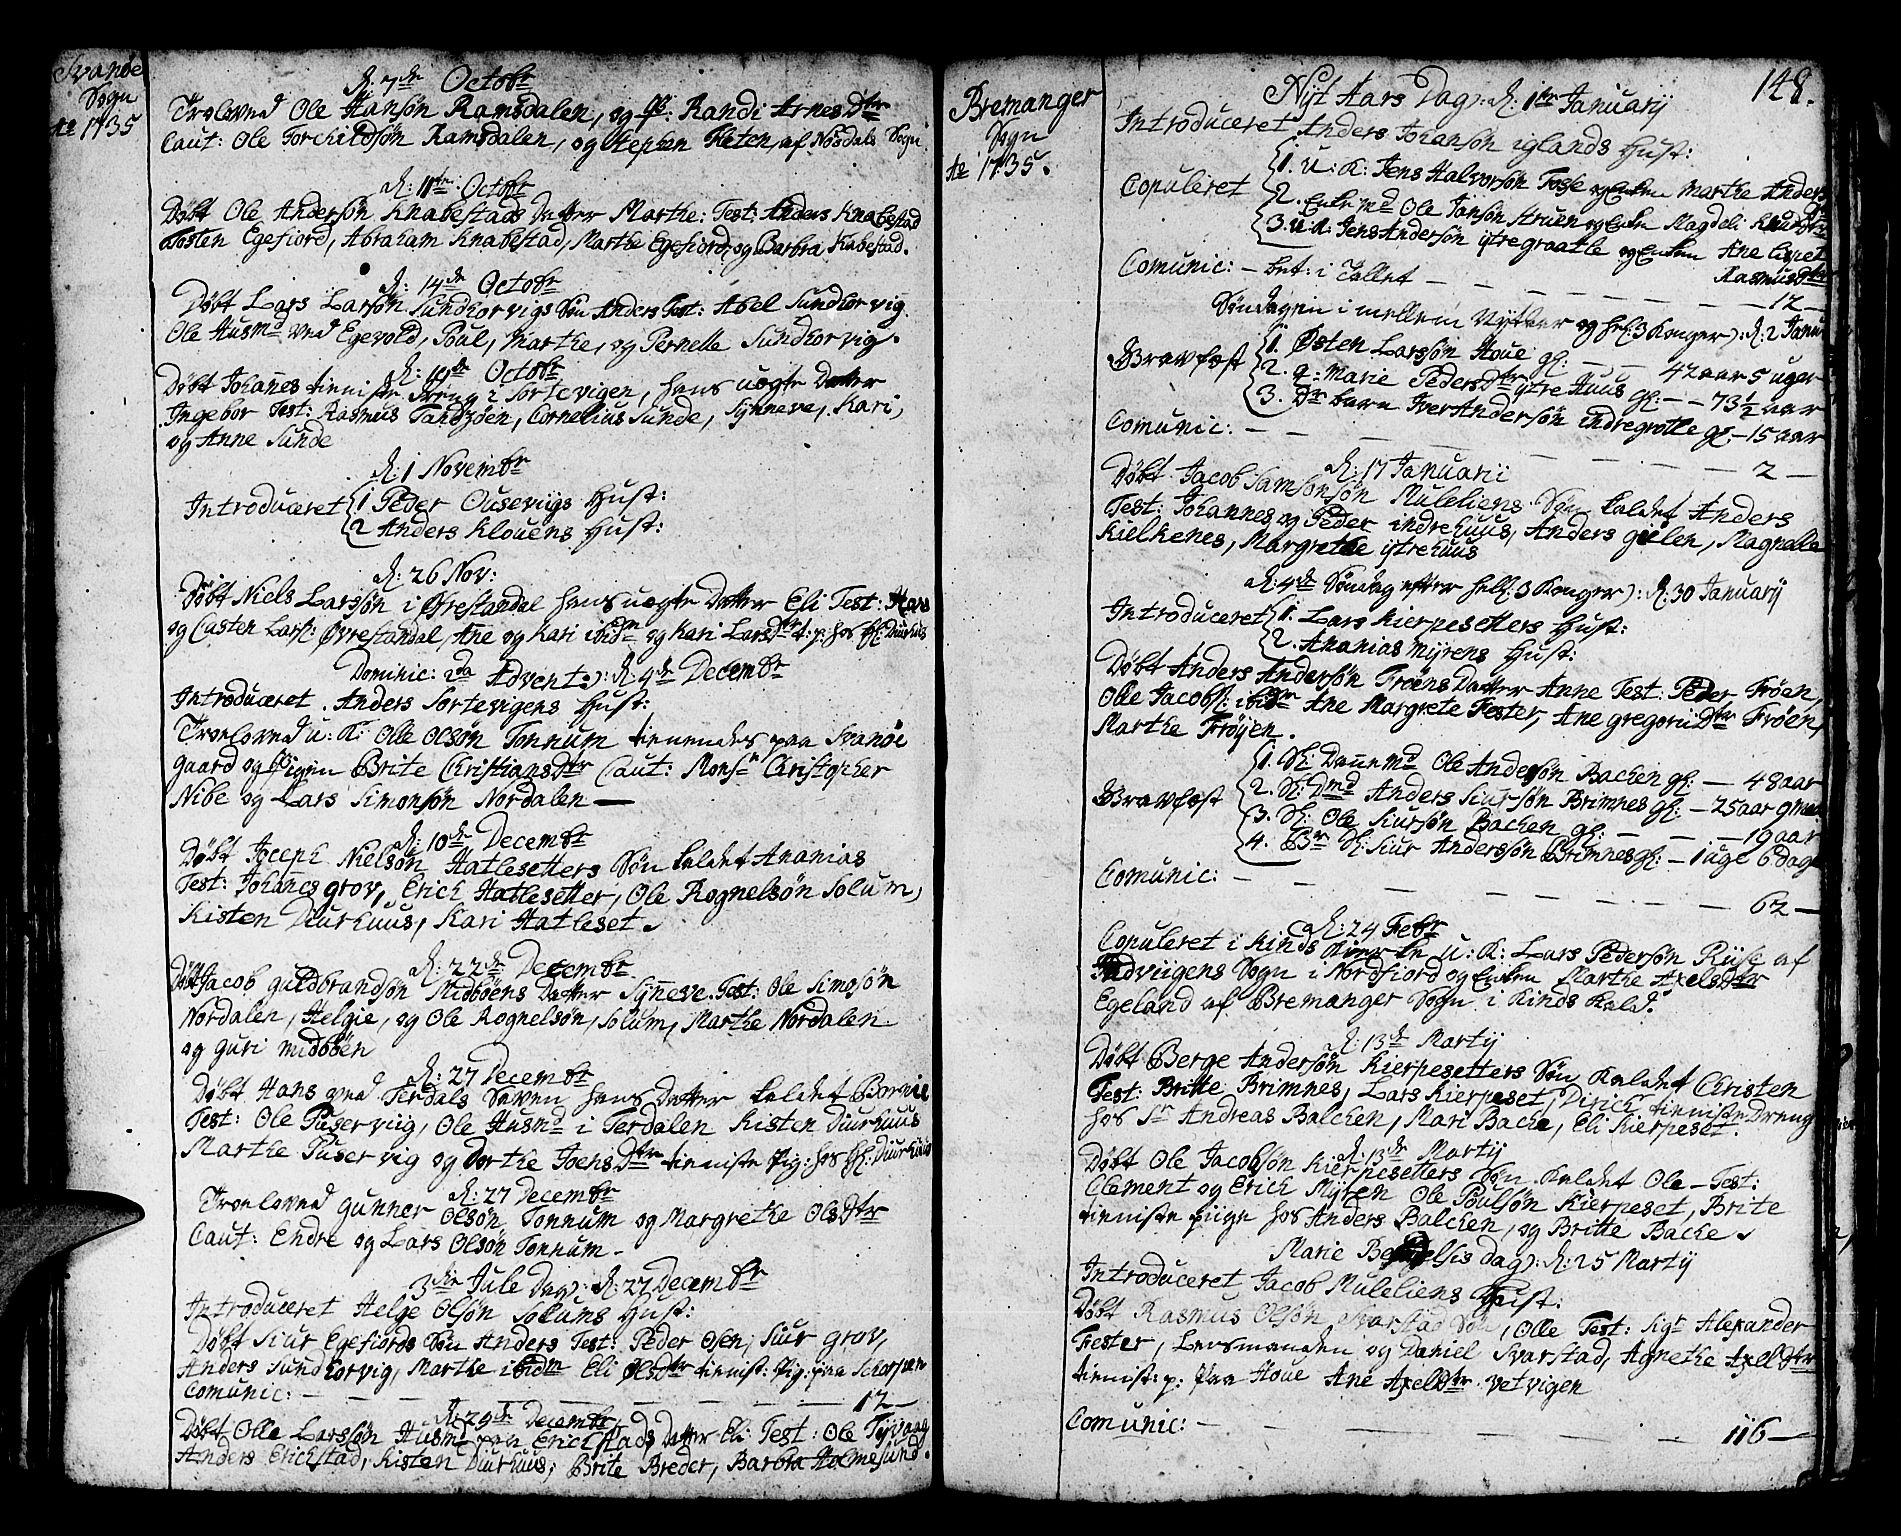 Svanøe
Sogn
Ao 1735
d: 7de Octobr
Troloved Ole Hansøn Ramsdalen, og P: Randi Arnes Dtr
Caut: Ole Torchildsøn Ramsdalen, og Stephen Fleten, af Nøsdals Sogn
d: 11te Octobr
Døbt Ole Andersøn Knabestads Datter Marthe: Test: Anders Knabestad
Tosten Egefiord, Abraham Knabestad, Marthe Egefiord, og Barbra Kabestad.
d: 14de Octobr
Døbt Lars Larsøn Sundhorvigs Søn Anders Test: Abel Sundhorvig
Ole Husmd ved Egevold, Poul, Marthe, og Pernelle Sundhorvig.
d: 19de Octobr
Døbt Johanes tieniste Dreng i Sortevigen, hans uægte Datter
Ingebor Test: Rasmus Sandzøen, Cornelius Sunde, Synneve, Kari,
og Anne Sunde
d: 1 Novembr
Introduceret 1 Peder Ousevigs Hust:
2 Anders Klouens Hust:
d: 26 Nov:
Døbt Niels Larsøn i Øvrestandal hans uægte Datter Eli Test:
og Casten Lars: Øvrestandal, Ane og Kari ibidm og Kari Larsdtr t: p: hos Diurhuus
Dominic: 2da Advent:): d: 4de Decembr
Introduceret Anders Sortevigens Hust:
Troloved u: K: Olle Olsøn Tonnum tienendes paa Svanøe
gaard og Pigen Brite Christiansdtr Caut: Monsr Christopher
Nibe og Lars Simonsøn Nordalen —
d: 10de Decembr
Døbt Joceph Nielsøn Hatlesetters Søn kaldet Ananias
Test: Johanes grov, Erich Hatlesetter, Ole Rognelsøn Solum,
Kisten Diurhuus, Kari Hatleset.
d: 22de Decembr
Døbt Jacob guldbrandsøn Midbøens Datter Syneve. Test: Ole Simosøn
Nordalen, Helgie, og Ole Rognelsøn, Solum, Marthe Nordalen
og guri midbøen
d: 27 Decembr
Døbt Hans ved Ferdals Søven hans Datter kaldet
Test: Ole Puserviig, Ole Husmd i Ferdalen Kisten Diurhuus
Marthe Puservig og Dorthe Joens Dtr tieniste Pig: hos Diurhuus
d: 27 Decembr
Troloved gunner Olsøn Tonnum og Margrethe Ols Dtr
Caut: Endre og Lars Olsøn Tonnum —
3die Jule Dag): d: 27 Decembr
Introduceret Helge Olsøn Solums Hust:
Døbt Siur Egefiords Søn Anders Test: Peder Osen, Siur grov,
Anders Sundhorvig, Marthe ibidm Eli Olsdtr tienist: Pig: paa Schorpen
Comunic: — — — 12 —
d: 29de Decembr
Døbt Olle Larsøn Husmd paa Erichstads Datter Eli Test: Ole
Anders Erichstad, Kisten Diurhuus, Brite Breder, Barbra Holmesund.
Bremanger
Sogn
Ao 1735.
148.
Nyt Aars Dag): d: 1te January
Introduceret Anders Johansøn iglands Hust:
Copuleret 1. u: K: Jens Halvorsøn Fosse og Enken Marthe Anders
2. Enkemd Ole Jansøn struen og Enken Magdeli
3. u. K. Jens Andersøn ytregraatle og Enken Ane
Rasmusdtr
Comunic: — bet: i Tallet — — — 12 —
Søndagen i mellem Nytaar og hel: 3 Konger): d: 2 Janu
Gravfæst 1. Østen Larsøn Houe gl: — — 42 aar 5 uger
2. q: Marie Pedersdtr ytre Huus gl: — — 73½ aar
3. barn Iver Andersøn indregrotle gl: — 15 aar
Comunic: — — — 2 —
d: 17 Januarii
Døbt Jacob Samsonsøn Muleliens Søn kaldet Anders
Test: Johannes og Peder indrehuus, Anders gielen, Magnalla
Kielkenes, Margrethe ytrehuus
d: 4de Søndag efter hell: 3 Konger): d: 30 January
Introduceret 1. Lars Kierpesetters Hust:
2. Ananias Myrens Hust:
Døbt Anders Andersøn Frøens Datter Anne Test: Peder Frøen,
Olle Jacobs: ibidm Ane Margrete Fester, Ane gregoridtr Frøen,
Marthe Frøyen.
Gravfæst 1. Sl: Danemd Ole Andersøn Bachen gl: — 48 aar
2. Sl: Dmd Anders Siursøn Brimnes gl: — 25 aar 9
3. Sl: Ole Siursøn Bachen gl: — — — 19 aar
4. Sl: Siur Anderssøn Brimnes gl: — 1 uge 6 dage
Comunic: — — — 62 —
d: 24 Febr
Copuleret i Kinds Kiercke u: K: Lars Pedersøn Riise af
Indviigens Sogn i Nordfiord og Enken Marthe Axelsdtr
Egeland af Bremanger Sogn i Kinds Kald.
d: 13de Martij
Døbt Berge Andersøn Kierpesetters Søn Kaldet Christen
Test: Britte Brimnes, Lars Kierpeset, Dirich tieniste Dreng
hos Sr Andreas Balchen, Mari Bache, Eli Kierpeset.
d: 13de Martij
Døbt Ole Jacobsøn Kierpesetters Søn Kaldet Ole — Test:
Clement og Erich Myren Ole Poulsøn Kierpeset, Brite
tieniste piige hos Anders Balchen, og Britte Bache.
Marie dag): d: 25 Martij
Introduceret Jacob Muleliens Hust:
Døbt Rasmus Olsøn Svarstad Søn, Olle Test: Sigr Alexander
Fester, Lensmanden og Daniel Svarstad, Agnethe Axelldtr
tienist: p: paa Houe Ane Axelldtr Vetvigen
Comunic: — — — 116 —